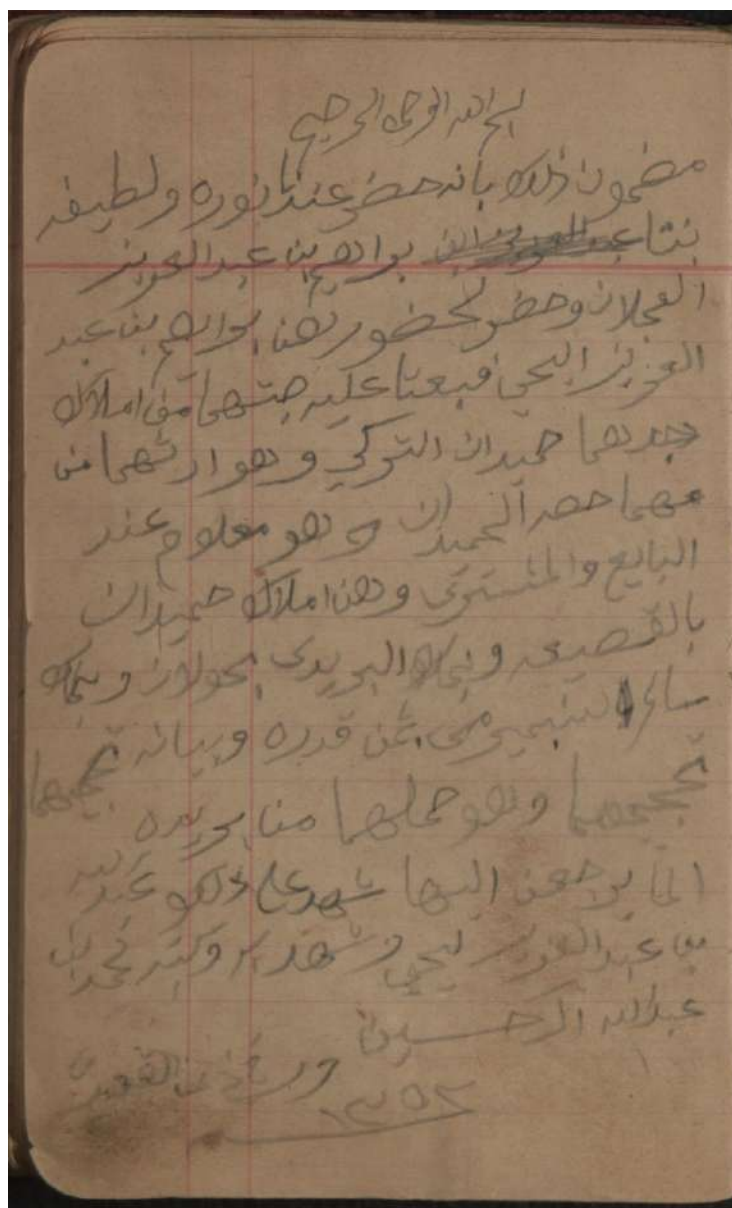 بسم الله الرحمن الرحيم
مضمون ذلك بانه حضر عندنا نوره ولطيفه
بنتا براهيم بن عبدالعزيز
العجلان وحضر لحضورهن براهيم بن عبد
العزيز اليحي فبعتا عليه جتهما من املاك
جدهما حميدان التركي وهو ارثهما من
مهما حصه الحميدان وهو معلوم عند
البايع والمشتري وهن املاك حميدان
بالقصيعه وبملك البريدي بحولان وبملك
سائر بثمن قدره وبيانه
تحجيجهما وهو حملهما من بريده
الما يرجعن اليها شهد على ذلك عبدالله
بن عبدالعزيز ليحي وشهد به وكتبه محمد بن
عبدالله الحسين
١٣٥٢